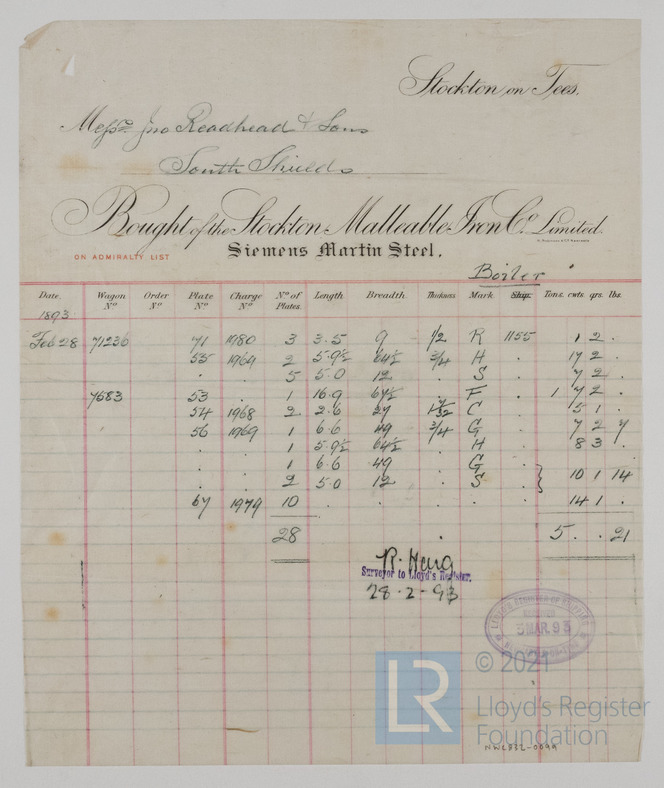 Stockton on Tees.
Messrs Jno Readhead & Sons
South Shields
Bought of the Stockton Malleable Iron Co. Limited.
ON ADMIRALTY LIST
Siemens Martin Steel.
Boiler
Date. Wagon No Order No Plate No Charge No No of Plates. Length Breadth Thickness Mark Ship. Tons. cwts. qrs. lbs.
1893
Feb 28 71236 71 1980 3 3.5 9 1/2 R 1155 1 2 .
55 1969 2 5.9½ 64½ 3/4 H . 17 2 .
. . 5 5.0 12 . S . 7 2 .
7583 53 . 1 16.9 67½ . F . 1 7 2 .
54 1968 2 2.6 27 C . 5 1 .
56 1969 1 6.6 49 3/4 G . 7 2 7
. . 1 5.9½ 64½ . H . 8 3 .
. . 1 6.6 49 . G .
. . 2 5.0 12 . S . } 10 1 14
67 1979 10 . . . . . 14 1 .
28 5 . . 21
Surveyor to Lloyd's Register.
28.2.93
LLOYD'S REGISTER OF SHIPPING
3 MAR. 93
LR
© 2021
Lloyd's Register
Foundation